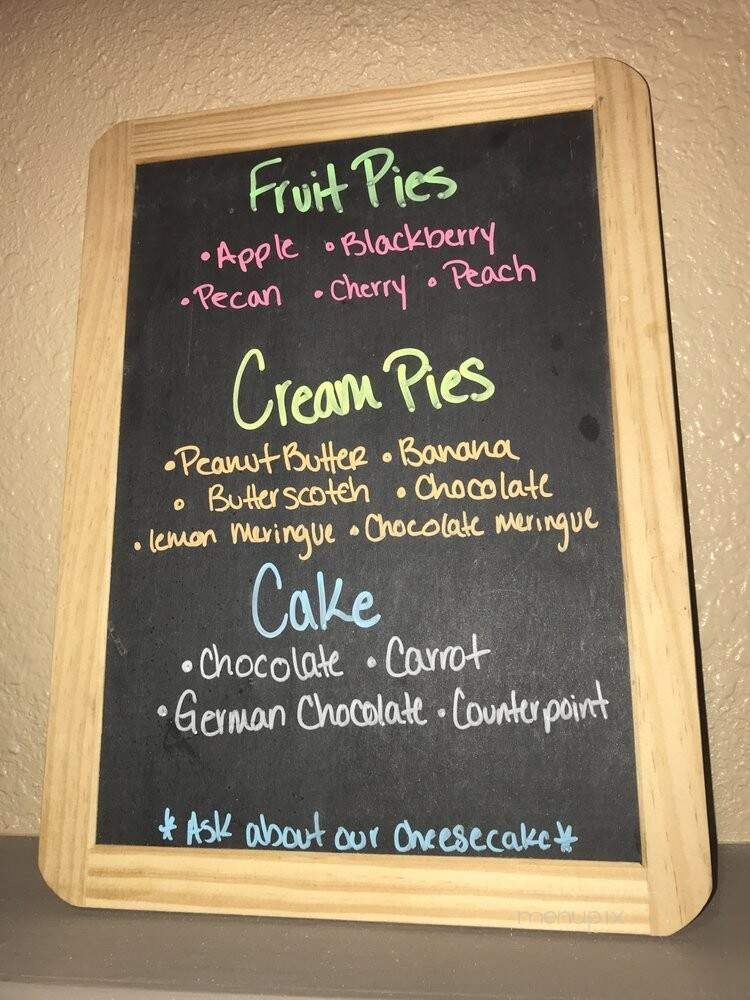 Fruit Pies
• Apple • Blackberry
• Pecan • Cherry • Peach
Cream Pies
• Peanut Butter • Banana
• Butterscotch • Chocolate
• lemon meringue • Chocolate meringue
Cake
• Chocolate • Carrot
• German Chocolate • Counterpoint
* Ask about our cheesecake *
menupix